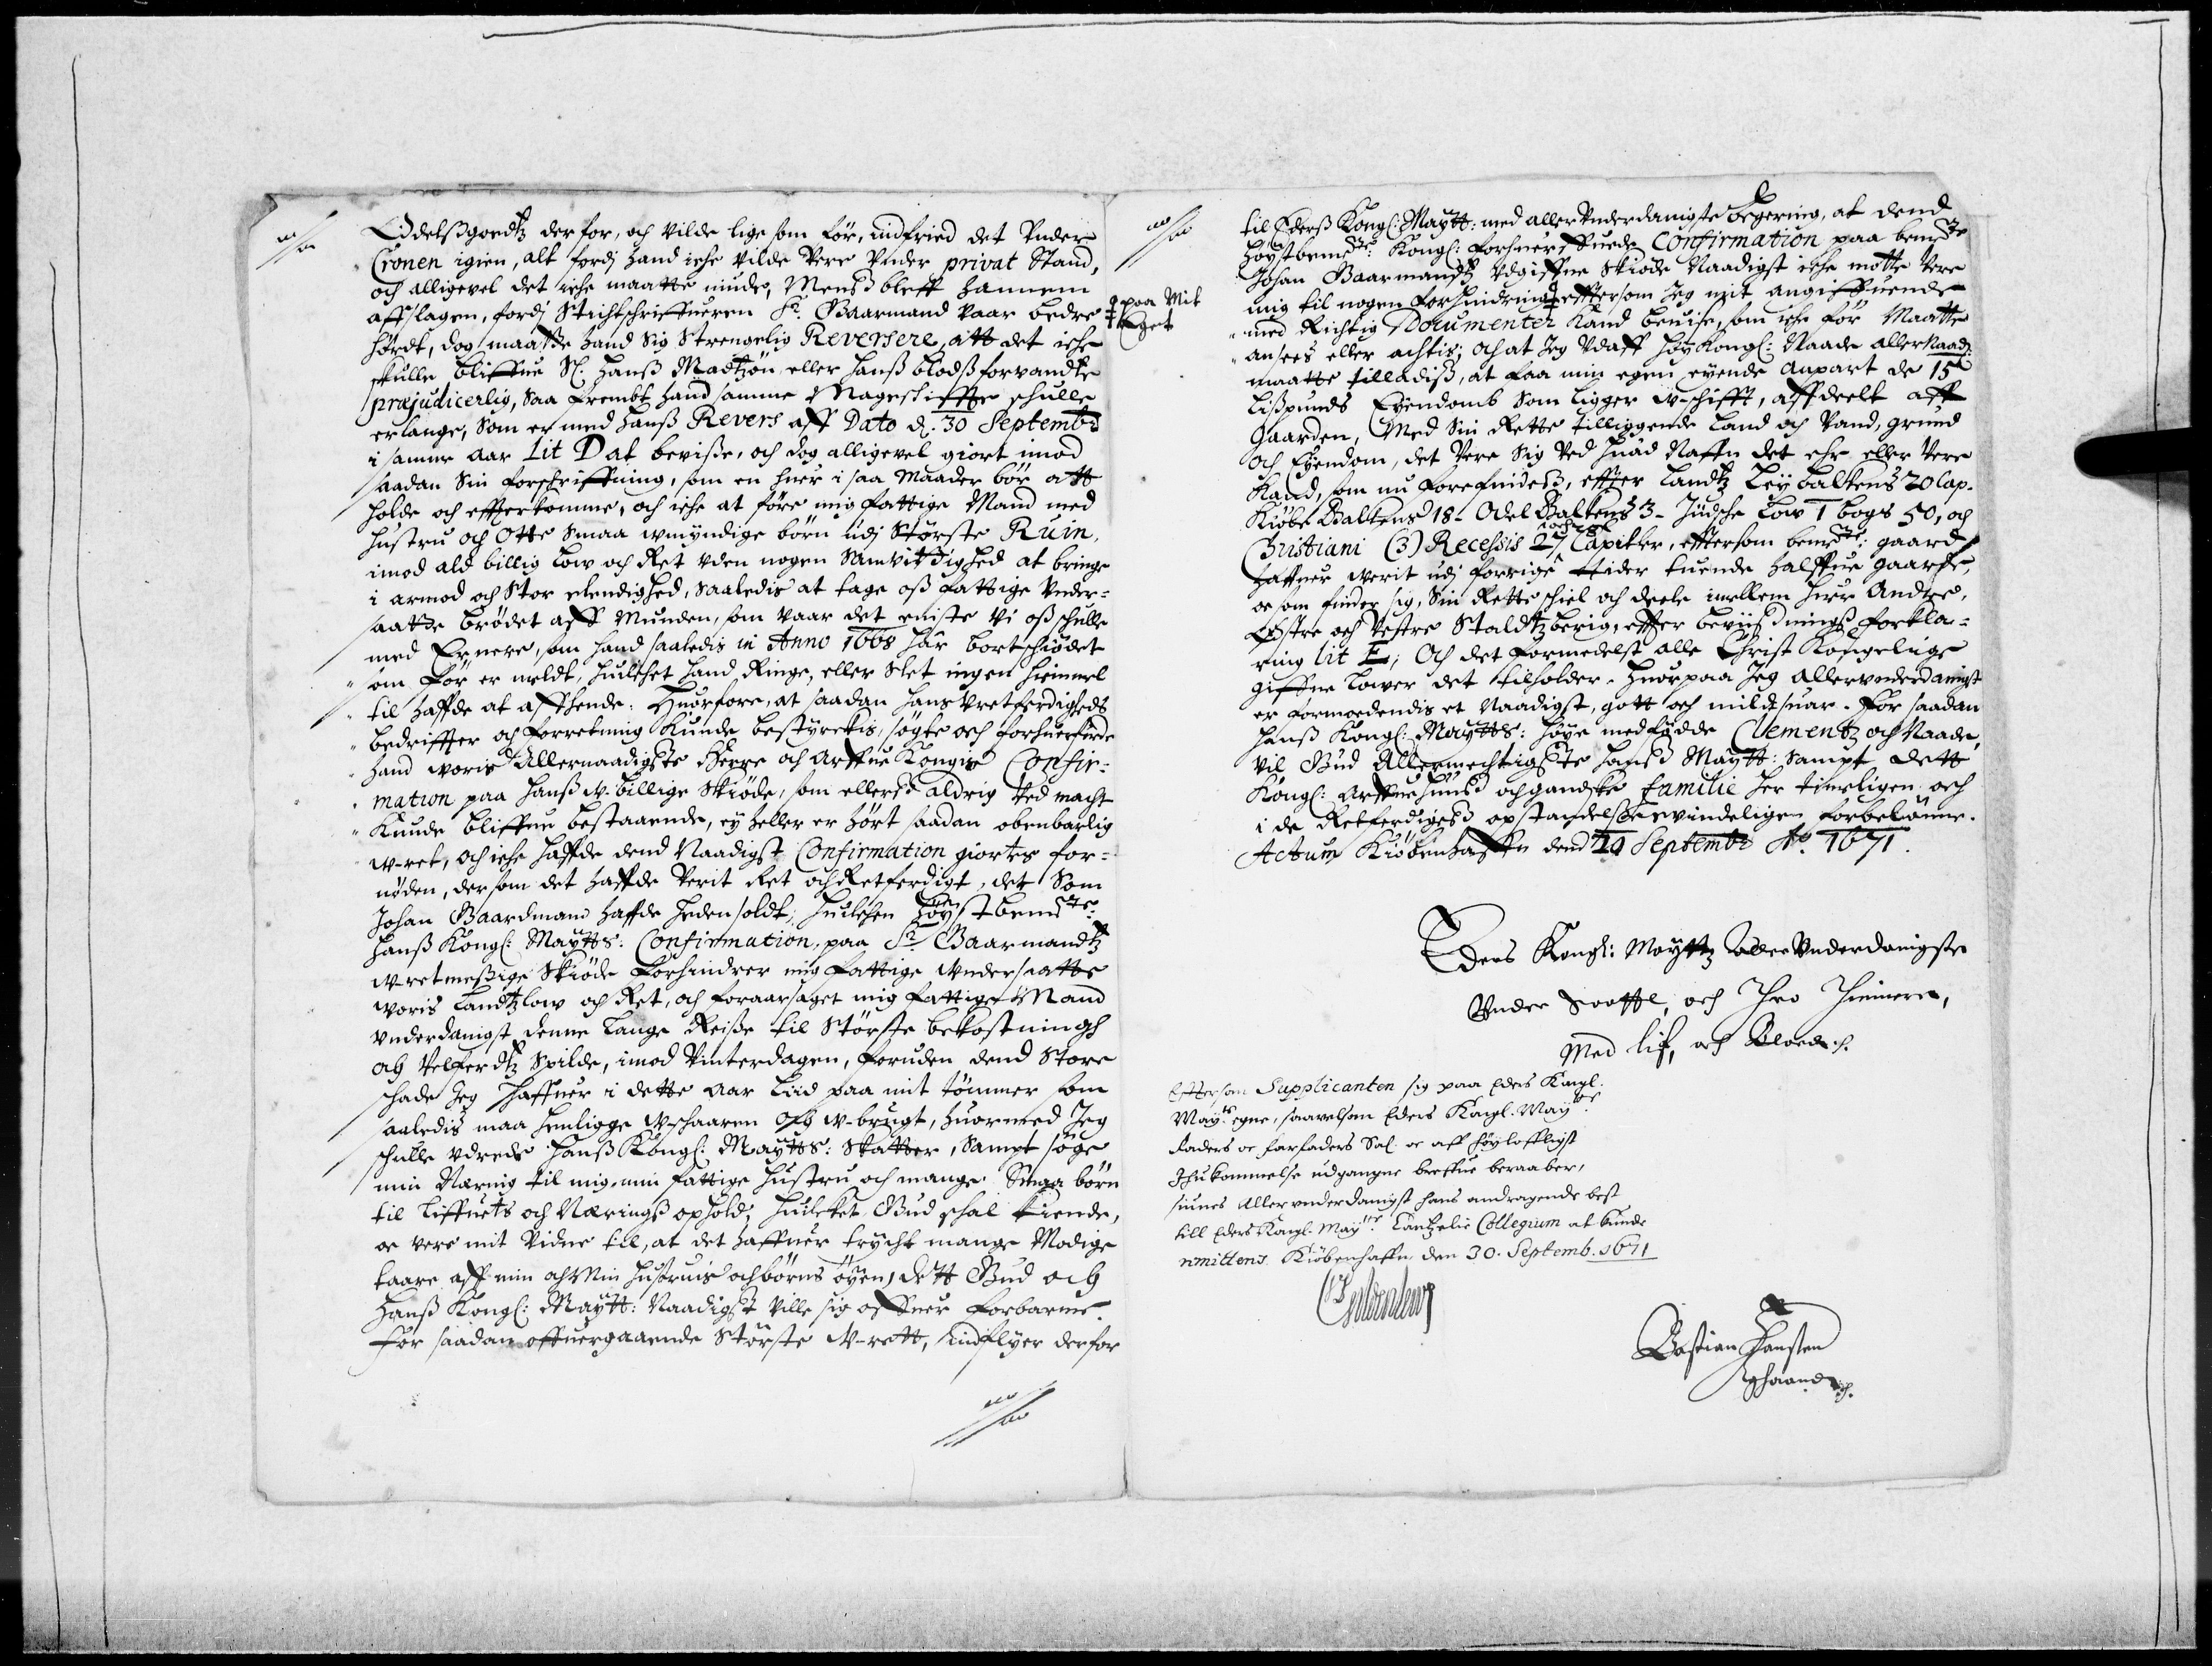 Odelßgoedtz derfor, och vilde lige som för, indfried det Under
Cronen igien, alt fordj hand iche vilde vere Under privat Stand,
och alligevel det iche maatte nÿude, Mens bleff hannem
affslagen, fordj Stichtschriffueren Sr. Baarmand vaar bedre
hördt, dog maatte hand sig Strengelig Reversere, att det iche
skulle bliffue Sl. Hanß Madtzön eller hanß blodß forvandte
præjudicerlig, saa frembt hand samme Mageskiffte schulle
erlange, Som er med hanß Revers aff Dato d. 30 Septembr
i samme Aar Lit D at beviße, och dog alligevel giort imod
saadan Sin forschriffning, som en huer i saa Maader bör att
holde och effterkomme, och iche at före mig fattige Mand med
Hustru och Otte Smaa wmyndige börn udj Störste Ruin,
imod ald billig Low och Ret uden nogen Samvittighed at bringe
i armod och Stor elendighed, saaledis at tage oß fattige Under-
saatte brödet aff Munden, som vaar det eniste vi oß schulle
med Ernere, som hand saaledis in Anno 1668 har bortschiödet
som för er meldt, huilchet hand Ringe, eller slet ingen hiemmel
til haffde at affhende: Huorfore, at saadan hans Uretferdigheds
bedriffter och forretning kunde bestyrckis, sögte och forhuerfuede
hand woris Allernaadigste Herre och Arffue Kongis Confir-
mation paa hanß w-billige Skiöde, som ellers aldrig Ved macht
Kunde bliffue bestaaende, eÿ heller er hört saadan obenbarlig
w-ret, och iche haffde dend Naadigst Confirmation giortes for-
nöden, dersom det haffde Verit Ret och Retferdigt, det Som
Johan Baardmand haffde hedensoldt; huilchen höÿstbemte
Hanß Kongl: Maÿtts: Confirmation, paa Sr. Baarmandtz
w-retmessige Skiöde Forhindrer mig fattige Undersaatte
woris Landtzlow och Ret, och foraarsaget mig fattige Mand
Underdanigst denne Lange Reiße til Störste bekostningh
och Velferdtz Spilde, imod Vinterdagen, foruden dend Store
schade Jeg haffuer i dette Aar Liid paa mit tömmer som
saaledis maa henligge w-schaaren och w-brugt, huormed Jeg
schulle Udrede Hanß Kongl: Maÿtts: Skatter, Sampt söge
min Næring til mig, min fattige Hustru och mange Smaa börn
til Liffuets och Næringß ophold; huilchet Gud schal kiende,
oc vere mit Vidne til, at det haffuer trycht mange Modige
taare aff min och Min Hustruis och börns öÿen, dett Gud och
Hanß Kongl: Maÿtt: Naadigst ville sig offuer forbarme.
For saadan offuergaaende Störste w-rett, Indflyer derfor
paa Mit
Eget
til Ederß Kongl: Maÿtt: med aller Underdanigste begering, at dend
Höÿstbemte: Kongl: forhuerffuede Confirmation paa bemte
Johan Baarmandtz Udgiffne Skiöde Naadigst iche motte Vere
mig til nogen Forhindring effttersom Jeg mit angiffuende
med Richtig Documenter Kand beuise, som iche för Maatte
ansees eller achtis; och at Jeg Udaff höÿ Kongl: Naade aller Naadi:
maatte tilladiß, at faa min egen eÿende Anpart de 15
Lißpunds Eÿendomb som Ligger w-schifft, affdeelt aff
Gaarden, Med Sin Rette tilliggende Land och Vand, grund
och Eÿendom, det Vere Sig Ved huad Naffn det ehr eller Vere
Kand, som nu forefindes, effter Landtz Leÿ Baltens 20 Cap.
Kiöbe Baltens 18 - Odel Baltens 3 - Jüdsche Low 1 bogs 50, och
Christiani (3) Recessis 27 Capitler, effttersom bemte: gaard
haffuer verit udj forrige tider tuende halffue gaarde,
oc som finder sig, Sin Rette schiel och deele imellem huer Andre,
Östre och Vestre Staldtzberig, effter bevißningß forkla-
ring Lit E; Och det formedelst alle Christ Kongelige
giffne Lower det tilholder. Huorpaa Jeg Allerunderdanigst
er formoedendis et Naadigst, gott och mildt suar. For saadan
Hanß Kongl: Maÿtts: höÿe medfødde Clementz och Naade,
vil Gud Allermechtigste Hanß Maÿtt: Sampt dett
Kongl: Arffuehuus och gandske familie her timeligen och
i de Retferdiges opstandelse ewindeligen forbelönne.
Actum Kiöbenhaffn dend 29 Septembr Ao. 1671.
Eders Kongl: Maÿttz Aller Underdanigste
Under Saatte, och Thro Thiennere,
Med lif, och Bloed
Effttersom Supplicanten sig paa Eders Kongl.
Mayts egne, saavelsom Eders Kongl. Mayts
Faders oc Farfaders Sal: oc aff höyloffligst
Ihukommelse udgangne breffue beraaber,
siunes Allerunderdanigst hans andragende best
till Eders Kongl. Mayts Cantzelie Collegium at kunde
remitteris. Kiöbenhaffn den 30. Septemb. 1671
Gyldenlew
Bastian Hansten